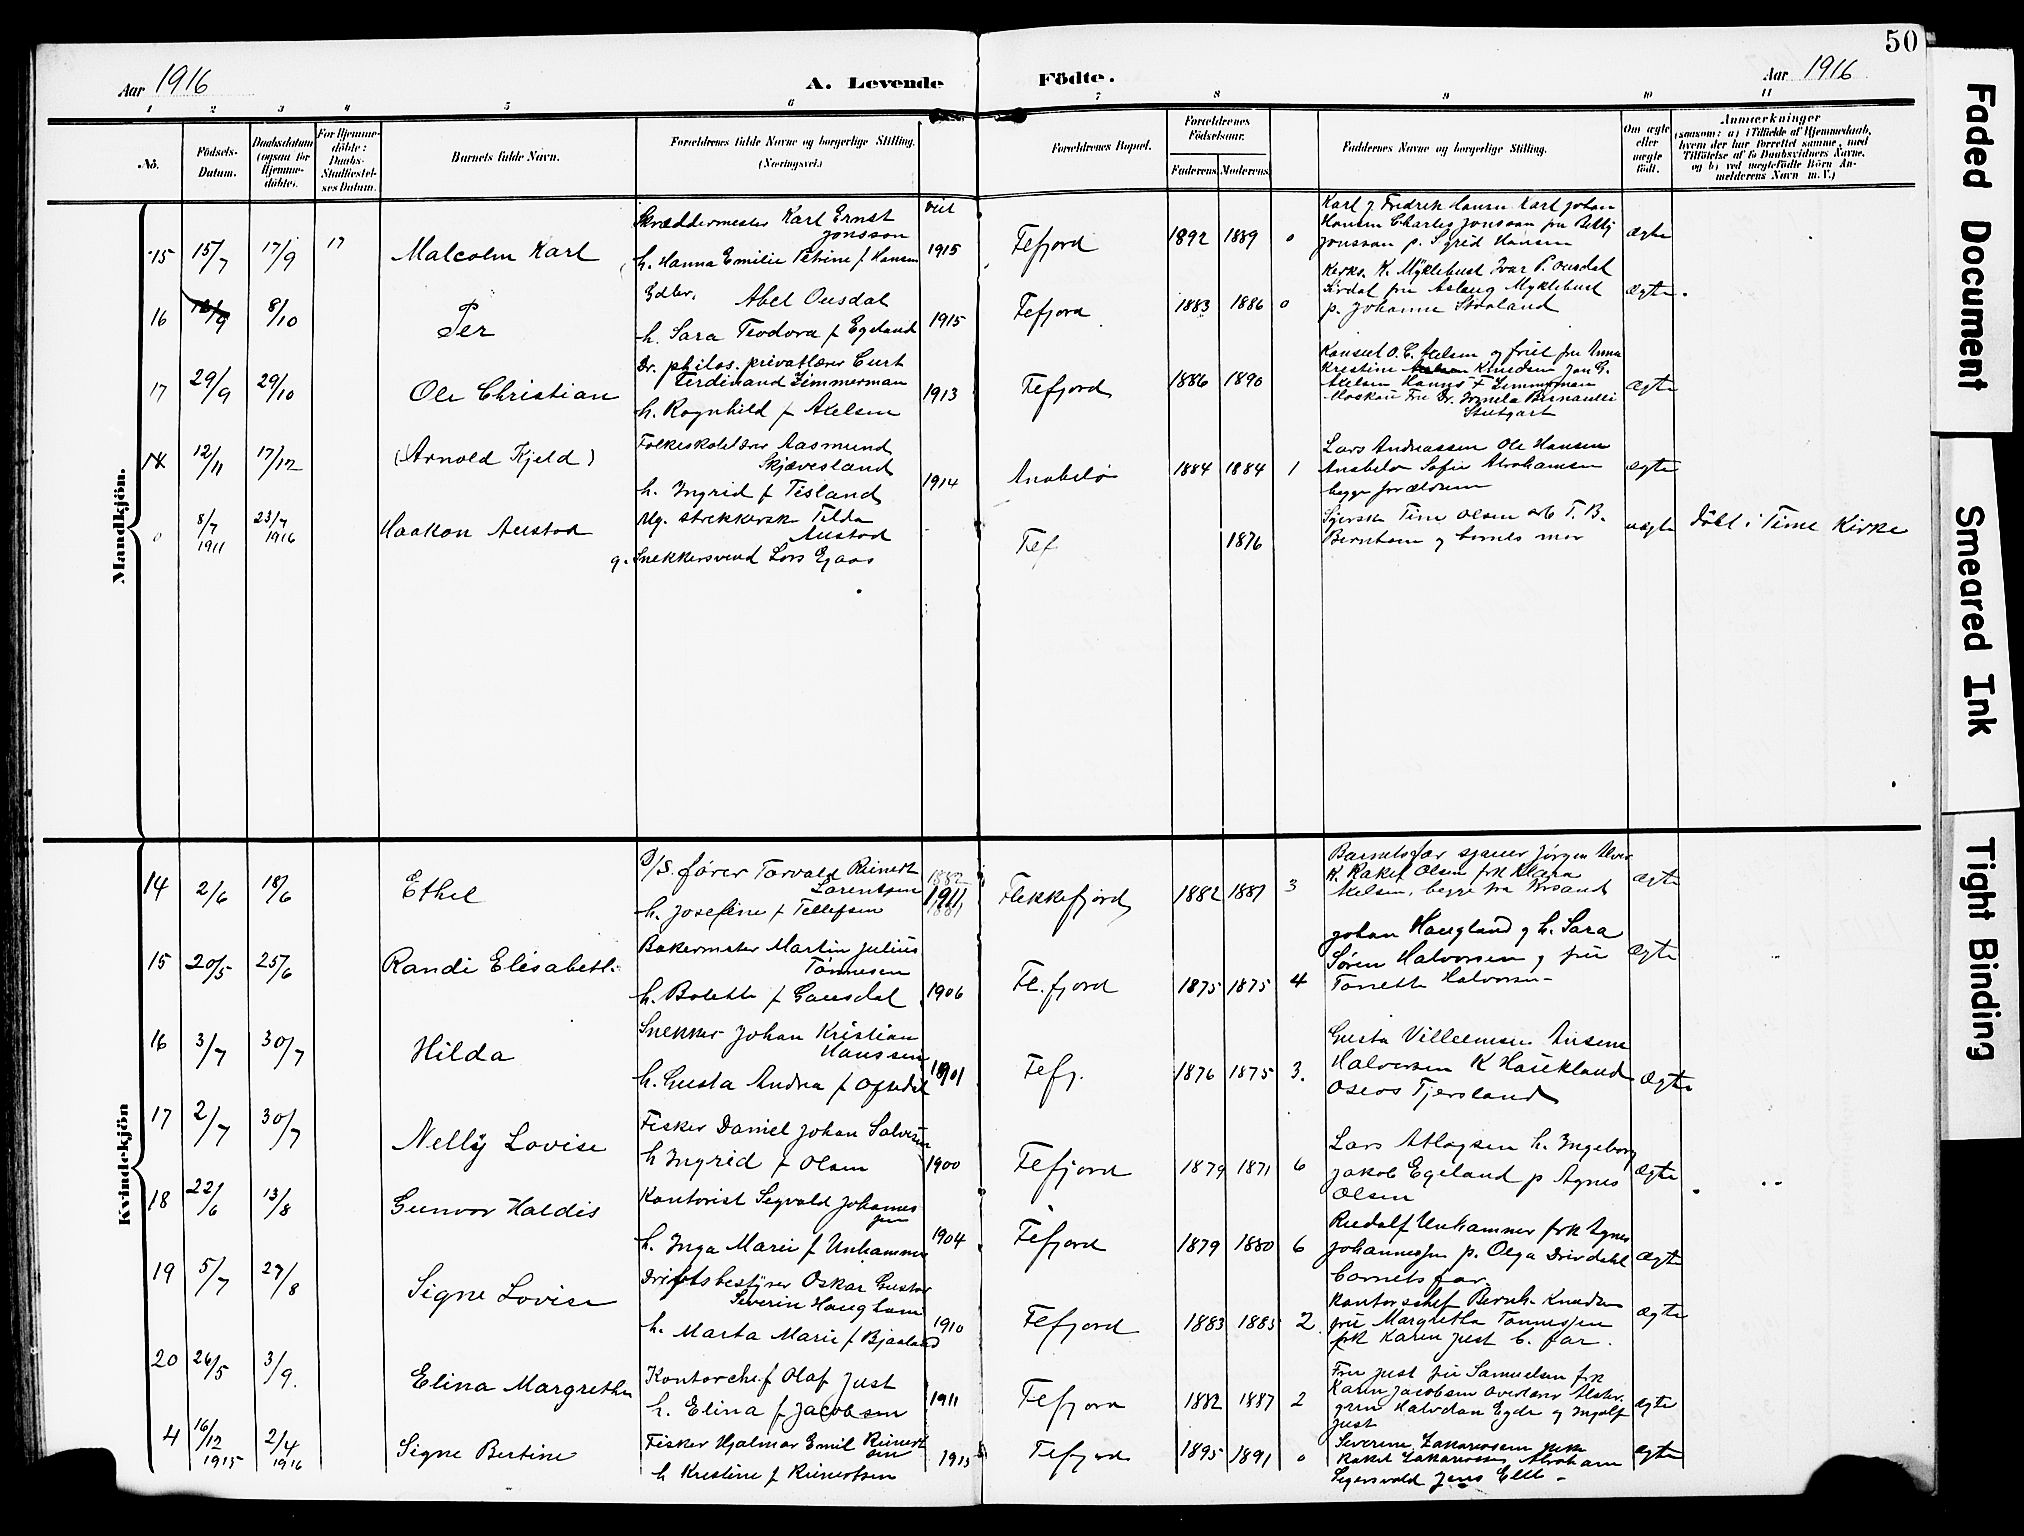 50
Aar 1916
A. Levende Födte.
Aar 1916
1 2 3 4 5 6 7 8 9 10 11
No.
Födsels-Datum.
Daabsdatum (ogsaa for Hjemmedöbte).
For Hjemmedöbte: Daabs-Stadfæstelses Datum.
Barnets fulde Navn.
Forældrenes fulde Navne og borgerlige Stilling. (Næringsvei.)
Forældrenes Bopæl.
Forældrenes Födselsaar.
Faderens. Moderens.
Faddernes Navne og borgerlige Stilling.
Om ægte eller uægte födt.
Anmærkninger
(saasom: a) i Tilfælde af Hjemmedaab, hvem der har forrettet samme, med Tilföielse af to Daabsvidners Navne, og b) ved uægtefödte Börn Anmelderens Navn m. V.)
Mandkjön.
viet
15 15/7 17/9 17 Malcolm Karl
Skræddermester Karl Ernst
Jonsson
h. Hanna Emilie Petrine f Hansen 1915
Fefjord 1892 1889 0
Karl og Fredrik Hansen Karl Johan
Hansen Charles Jonsson fru Betty
Jonsson p. Sigrid Hansen
ægte
16 12/9 8/10 Per
Gdbr. Abel Ousdal
h. Sara Teodora f Egeland 1915
Fefjord 1883 1886 0
Kirks. K. Myklebust Ivar P. Ousdal
Sirdal fru Aslaug Myklebust
p. Johanne Straland
ægte.
17 29/9 29/10 Ole Christian
Dr. philos. privatlærer Curt
Ferdinand Zimmerman
h. Ragnhild f Axelsen 1913
Fefjord 1886 1890
Konsul O. C. Axelsen og fru fru Anna
Kristine Knudsen Jon G.
Axelsen Hanns F Zimmerman
Moskau Fru Dr. Bernaulli
Stutgart
ægte
18 12/11 17/12 (Arnold Kjeld)
Folkeskolelærer Aasmund
Skjævesland
h. Ingrid f Tisland 1914
Anabeló 1884 1884 1
Lars Andreassen Ole Hansen
Anabeló Sofie Abrahamsen
begge forældrene
ægte
0 8/7 1911 23/7 1916 Haakon Austad
Ug. strikkerske Tilda
Austad
g. Snekkersvend Lars Egaas
Fef 1876
Tine Olsen T. B.
Bernhem og barnets mor
uægte
döbt i Time Kirke
Kvindekjön
14 2/6 18/6 Ethel
D/S. fører Torvald Reinert
Lorentsen
h. Josefine f Tellefsen
1882
1911
1881
Flekkefjord 1882 1881 3
Barnets far Jørgen
K. Rakel Olsen frk Klara
Axelsen, begge fra Krsand
ægte
15 20/5 25/6 Randi Elisabeth
Bakermster Martin Julius
Tönnesen
h. Bolette f Gausdal 1906
Fl. fjord 1875 1875 4
Johan Haugland og h. Sara
Søren Halvorsen og fru
Tonette Halvorsen
ægte
16 3/7 30/7 Hilda
Snekker Johan Kristian
Hanssen
h. Gusta Andrea f Ofsedal 1901
Fefj. 1876 1875 3.
Gusta Villumsen Ansine
Halvorsen K Haukland
Oseas Tjersland
ægte
17 2/7 30/7 Nelly Lovise
Fisker Daniel Johan Salvesen
h Ingrid f Olsen 1900
Fefjord 1879 1871 6
Lars Atlagsen h. Ingeborg
Jakob Egeland p Agnes
Olsen
ægte
18 22/6 13/8 Gunvor Haldis
Kontorist Segvald Johannes
sen
h. Inga Marie f Unhammer 1904
Fefjord 1879 1880 6
Rudolf Unhammer frk Agnes
Johannessen p. Olga Drivdahl
barnets far
ægte
19 5/7 27/8 Signe Lovise
Driftsbestyrer Oskar Gustav
Severin Haugland
h. Marta Marie f Bjaaland 1910
Fefjord 1883 1885 2
Kontorschef Bernh. Knudsen
fru Margretha Tönnessen
frk Karen Just b. far.
ægte
20 26/5 3/9. Elina Margrethe
Kontorchef Olaf Just
h. Elina f Jacobsen 1911
Fefjord 1882 1887 2
Fru Just fru Samuelsen frk
Karen Jacobsen overlærer
gren Halvdan Egde og Ingolf
Just
ægte
4 16/12 1915 2/4 1916 Signe Bertine
Fisker Hjalmar Emil Reinert
sen
h Kristine f Reinertsen 1915
Fefjord 1895 1891 0
Severine Zakariassen
Rakel Zakariassen Abraham
Segersvold Jens Elle
ægte
Faded Document
Smeared Ink
Tight Binding